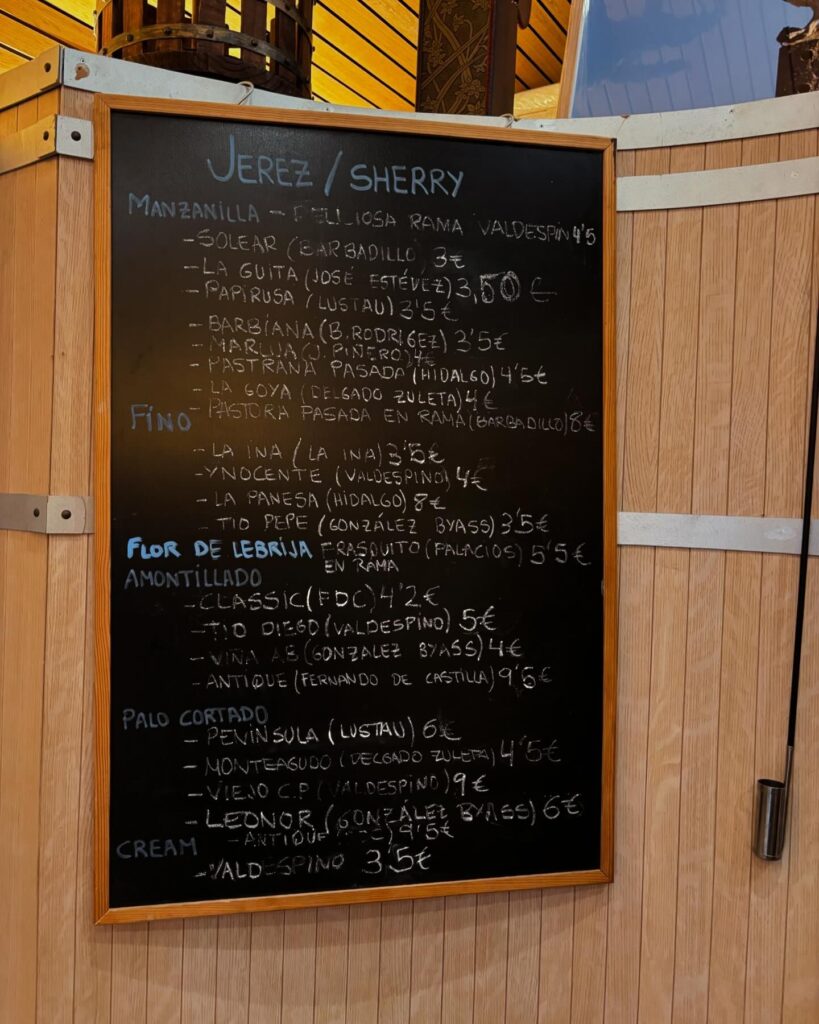 JEREZ / SHERRY
MANZANILLA - DELICIOSA RAMA VALDESPIN 4'5
- SOLEAR (BARBADILLO) 3€
- LA GUITA (JOSÉ ESTÉVEZ) 3,50 €
- PAPIRUSA (LUSTAU) 3'5€
- BARBIANA (B. RODRIGEZ) 3'5€
- MARUJA (J. PIÑERO) 4€
- PASTRANA PASADA (HIDALGO) 4'5€
- LA GOYA (DELGADO ZULETA) 4€
- PASTORA PASADA EN RAMA (BARBADILLO) 8€
FINO
- LA INA (LA INA) 3'5€
- YNOCENTE (VALDESPINO) 4€
- LA PANESA (HIDALGO) 8€
- TIO PEPE (GONZÁLEZ BYASS) 3'5€
FLOR DE LEBRIJA FRASQUITO (PALACIOS) 5'5€
EN RAMA
AMONTILLADO
- CLASSIC (FDC) 4'2€
- TIO DIEGO (VALDESPINO) 5€
- VIÑA AB (GONZALEZ BYASS) 4€
- ANTIQUE (FERNANDO DE CASTILLA) 9'5€
PALO CORTADO
- PENINSULA (LUSTAU) 6€
- MONTEAGUDO (DELGADO ZULETA) 4'5€
- VIEJO C.P (VALDESPINO) 9€
- LEONOR (GONZÁLEZ BYASS) 6€
- ANTIQUE 9'5€
CREAM
- VALDESPINO 3'5€